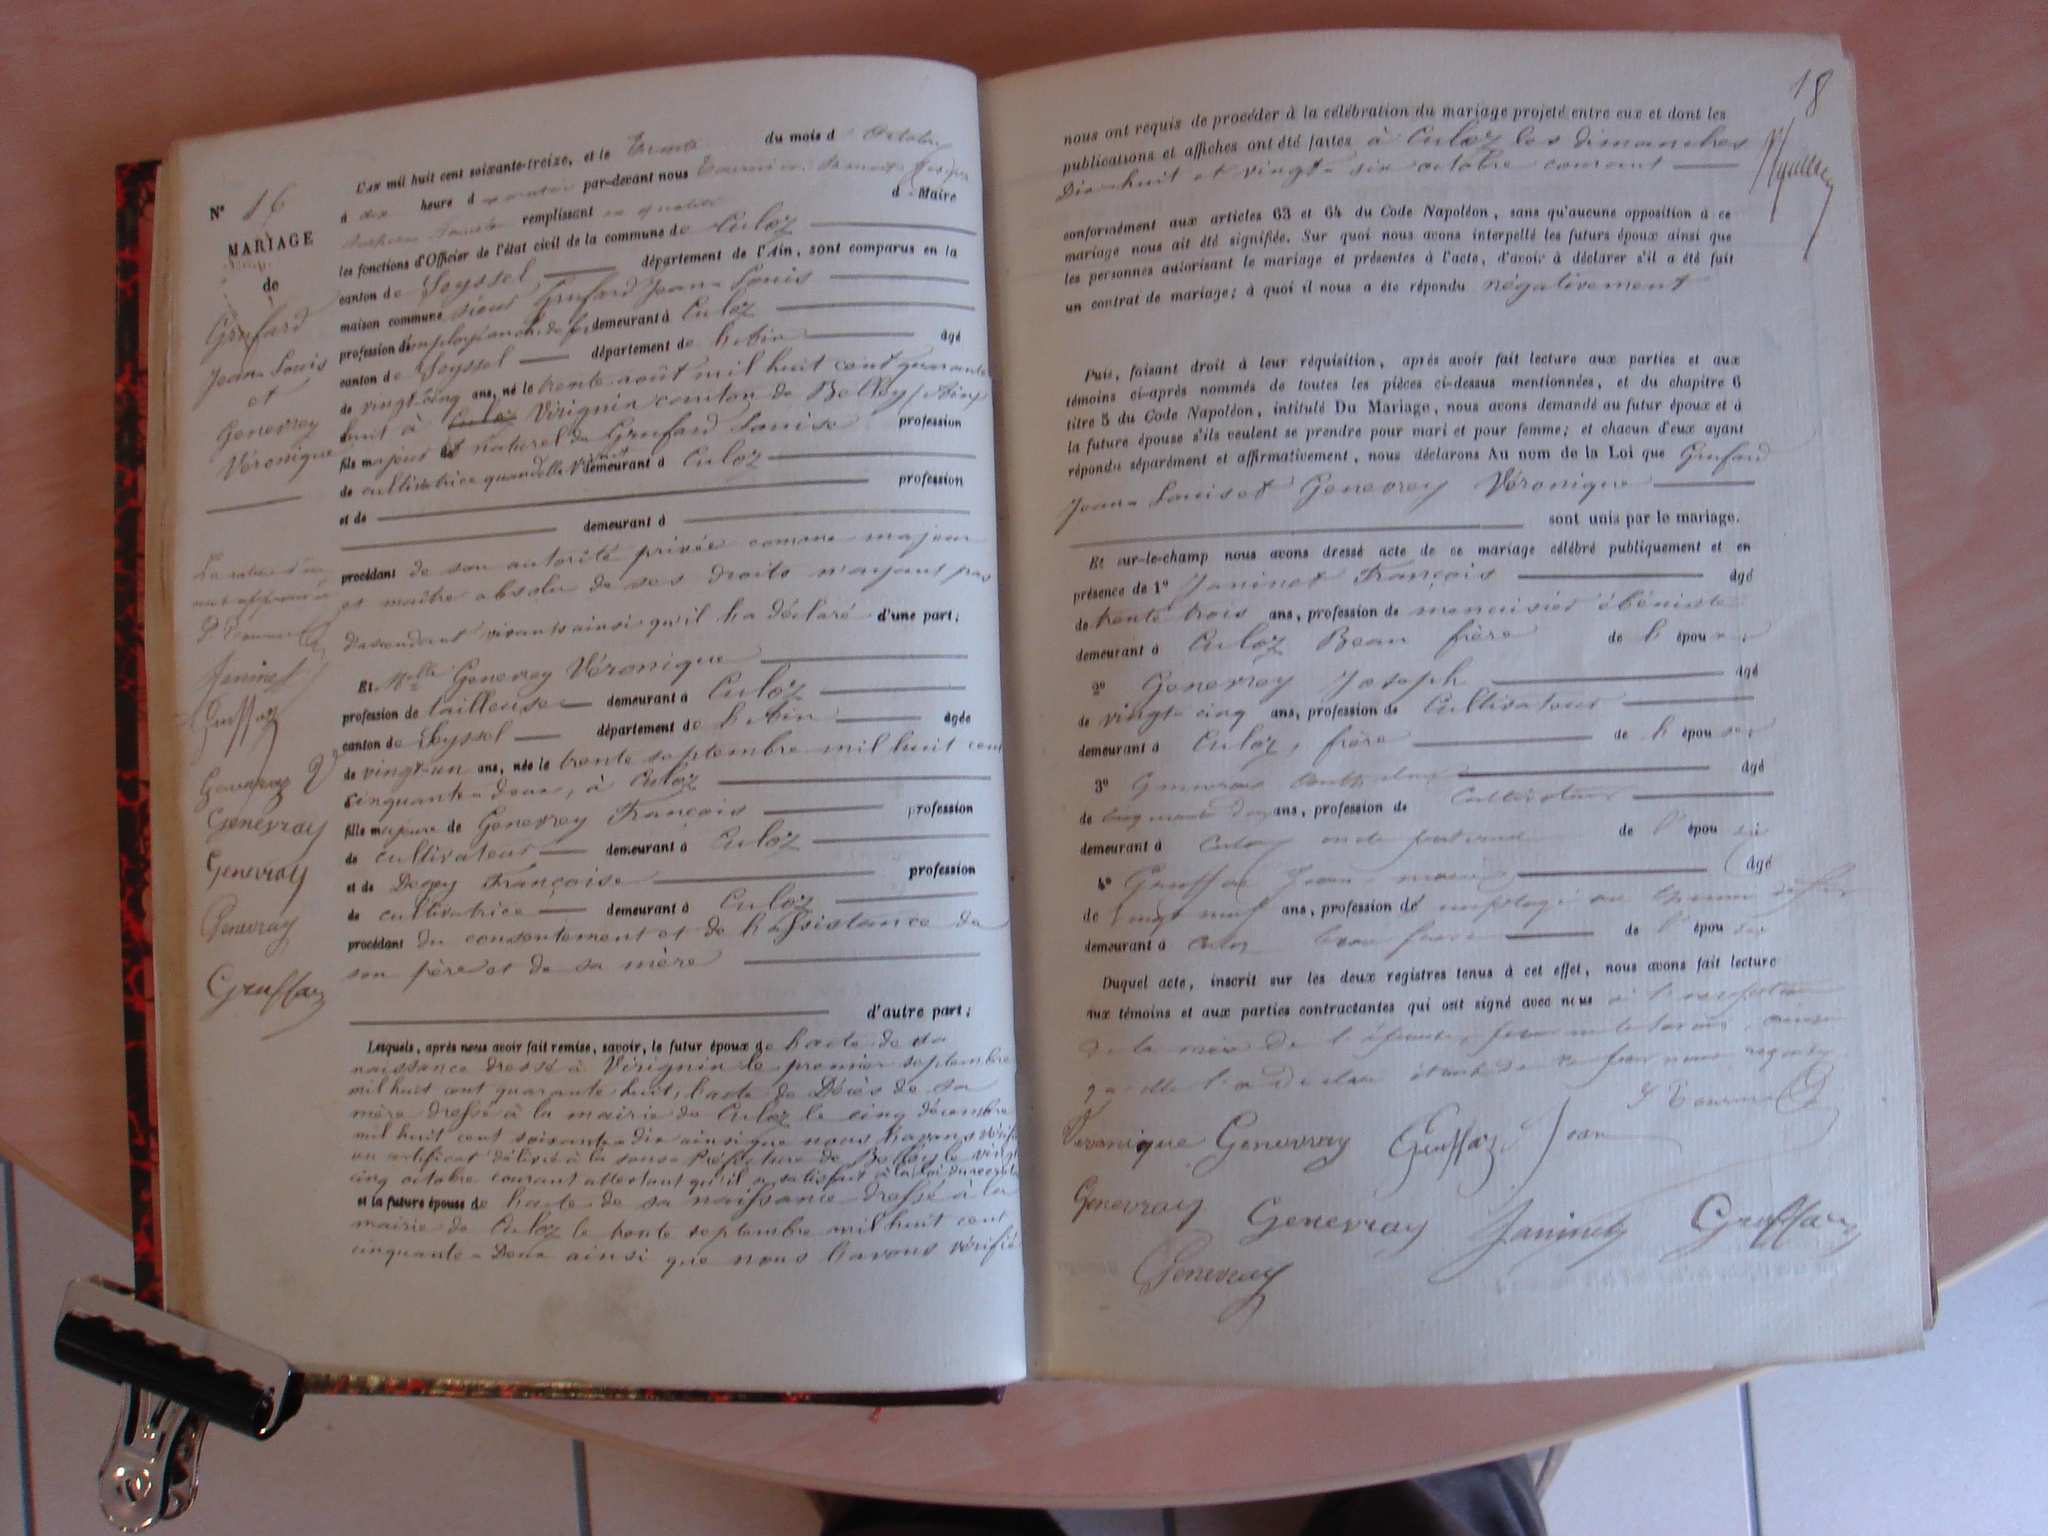 N° 16
MARIAGE
de
Grufard
Jean-Louis
et
Genevrey
Véronique
Janinet
Gruffaz
Genevray
Genevray
Genevray
Gruffaz
L'AN mil huit cent soixante-treize, et le trente du mois d'Octobre
à dix heure d par-devant nous
remplissant d Maire
les fonctions d'Officier de l'état civil de la commune de Culoz
canton de Seyssel, département de l'Ain, sont comparus en la
maison commune sieur Grufard Jean-Louis
profession d'employé au ch. de fer demeurant à Culoz
canton de Seyssel département de l'Ain âgé
de vingt-cinq ans, né le trente août mil huit cent quarante
huit à Culoz Virignin canton de Belley (Ain)
fils majeur et naturel de Grufard Louise profession
de cultivatrice quand elle vivait demeurant à Culoz
et de profession
demeurant à
procédant de son autorité privée comme majeur
et maître absolu de ses droits n'ayant pas
d'ascendant vivants ainsi qu'il l'a déclaré d'une part;
Et Melle Genevrey Véronique
profession de tailleuse demeurant à Culoz
canton de Seyssel département de l'Ain âgée
de vingt-un ans, née le trente septembre mil huit cent
cinquante-deux, à Culoz
fille majeure de Genevrey François profession
de cultivateur demeurant à Culoz
et de Françoise profession
de cultivatrice demeurant à Culoz
procédant du consentement et de l'assistance de
son père et de sa mère
d'autre part;
Lesquels, après nous avoir fait remise, savoir, le futur époux de l'acte de sa
naissance dressé à Virignin le premier septembre
mil huit cent quarante huit, l'acte de Décès de sa
mère dressé à la mairie de Culoz le cinq décembre
mil huit cent soixante-dix ainsi que nous l'avons vérifié
un certificat délivré à la sous-Préfecture de Belley le vingt
cinq octobre courant attestant qu'il a satisfait à la loi du recrutement
et la future épouse de l'acte de sa naissance dressé à la
mairie de Culoz le trente septembre mil huit cent
cinquante-Deux ainsi que nous l'avons vérifié
18
nous ont requis de procéder à la célébration du mariage projeté entre eux et dont les
publications et affiches ont été faites à Culoz les dimanches
Dix-huit et vingt-six octobre courant
conformément aux articles 63 et 64 du Code Napoléon, sans qu'aucune opposition à ce
mariage nous ait été signifiée. Sur quoi nous avons interpellé les futurs époux ainsi que
les personnes autorisant le mariage et présentes à l'acte, d'avoir à déclarer s'il a été fait
un contrat de mariage; à quoi il nous a été répondu négativement
Puis, faisant droit à leur réquisition, après avoir fait lecture aux parties et aux
témoins ci-après nommés de toutes les pièces ci-dessus mentionnées, et du chapitre 6
titre 5 du Code Napoléon, intitulé Du Mariage, nous avons demandé au futur époux et à
la future épouse s'ils veulent se prendre pour mari et pour femme; et chacun d'eux ayant
répondu séparément et affirmativement, nous déclarons Au nom de la Loi que Grufard
Jean-Louis et Genevrey Véronique
sont unis par le mariage.
Et sur-le-champ nous avons dressé acte de ce mariage célébré publiquement et en
présence de 1° Janinet François âgé
de trente trois ans, profession de menuisier ébéniste
demeurant à Culoz Beau frère de l'époux,
2° Genevrey Joseph âgé
de vingt-cinq ans, profession de Cultivateur
demeurant à Culoz, frère de l'épouse,
3° âgé
de cinquante deux ans, profession de Cultivateur
demeurant à Culoz oncle paternel de l'épouse
4° Gruffaz Jean-marie âgé
de vingt neuf ans, profession de employé au chemin de fer
demeurant à Culoz beau frère de l'épouse
Duquel acte, inscrit sur les deux registres tenus à cet effet, nous avons fait lecture
aux témoins et aux parties contractantes qui ont signé avec nous à l'exception
de la mère de l'épouse, ainsi
qu'elle l'a déclaré étant de ce faire requise
Veronique Genevray Gruffaz Jean
Genevray Genevray Janinet Gruffaz
Genevray